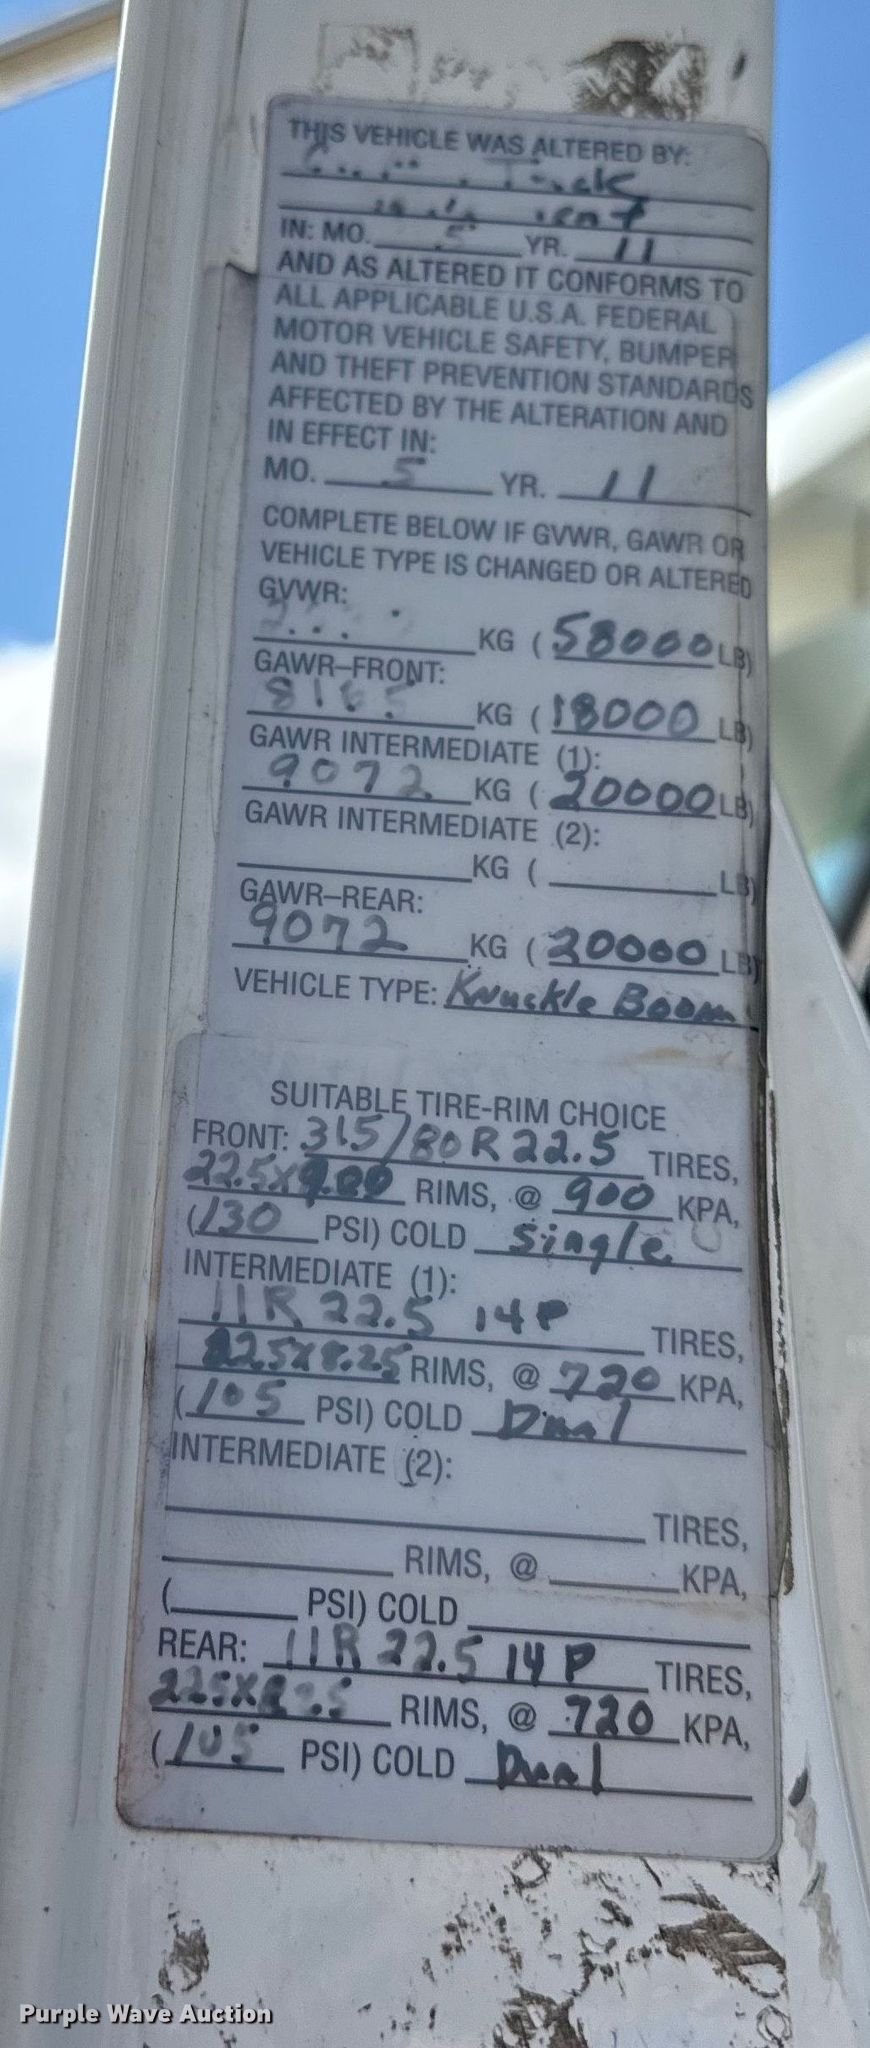 THIS VEHICLE WAS ALTERED BY:
Truck
IN: MO. 5 YR. 11
AND AS ALTERED IT CONFORMS TO
ALL APPLICABLE U.S.A. FEDERAL
MOTOR VEHICLE SAFETY, BUMPER
AND THEFT PREVENTION STANDARDS
AFFECTED BY THE ALTERATION AND
IN EFFECT IN:
MO. 5 YR. 11
COMPLETE BELOW IF GVWR, GAWR OR
VEHICLE TYPE IS CHANGED OR ALTERED
GVWR:
KG (58000 LB)
GAWR-FRONT:
8165 KG (18000 LB)
GAWR INTERMEDIATE (1):
9072 KG (20000 LB)
GAWR INTERMEDIATE (2):
KG ( LB)
GAWR-REAR:
9072 KG (20000 LB)
VEHICLE TYPE: Knuckle Boom
SUITABLE TIRE-RIM CHOICE
FRONT: 315/80R22.5 TIRES,
22.5x9.00 RIMS, @ 900 KPA,
(130 PSI) COLD Single
INTERMEDIATE (1):
11R22.5 14P TIRES,
22.5x8.25 RIMS, @ 720 KPA,
(105 PSI) COLD Dual
INTERMEDIATE (2):
TIRES,
RIMS, @ KPA,
( PSI) COLD
REAR: 11R22.5 14P TIRES,
RIMS, @ 720 KPA,
(105 PSI) COLD Dual
Purple Wave Auction